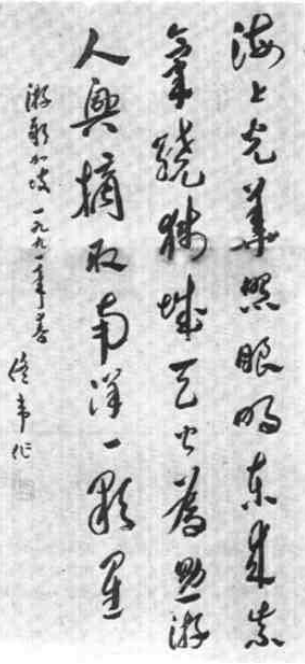 海上光华照眼明东来紫
气绕狮城天公为助游
人兴摘取南洋一颗星
游新加坡一九九一年春 作